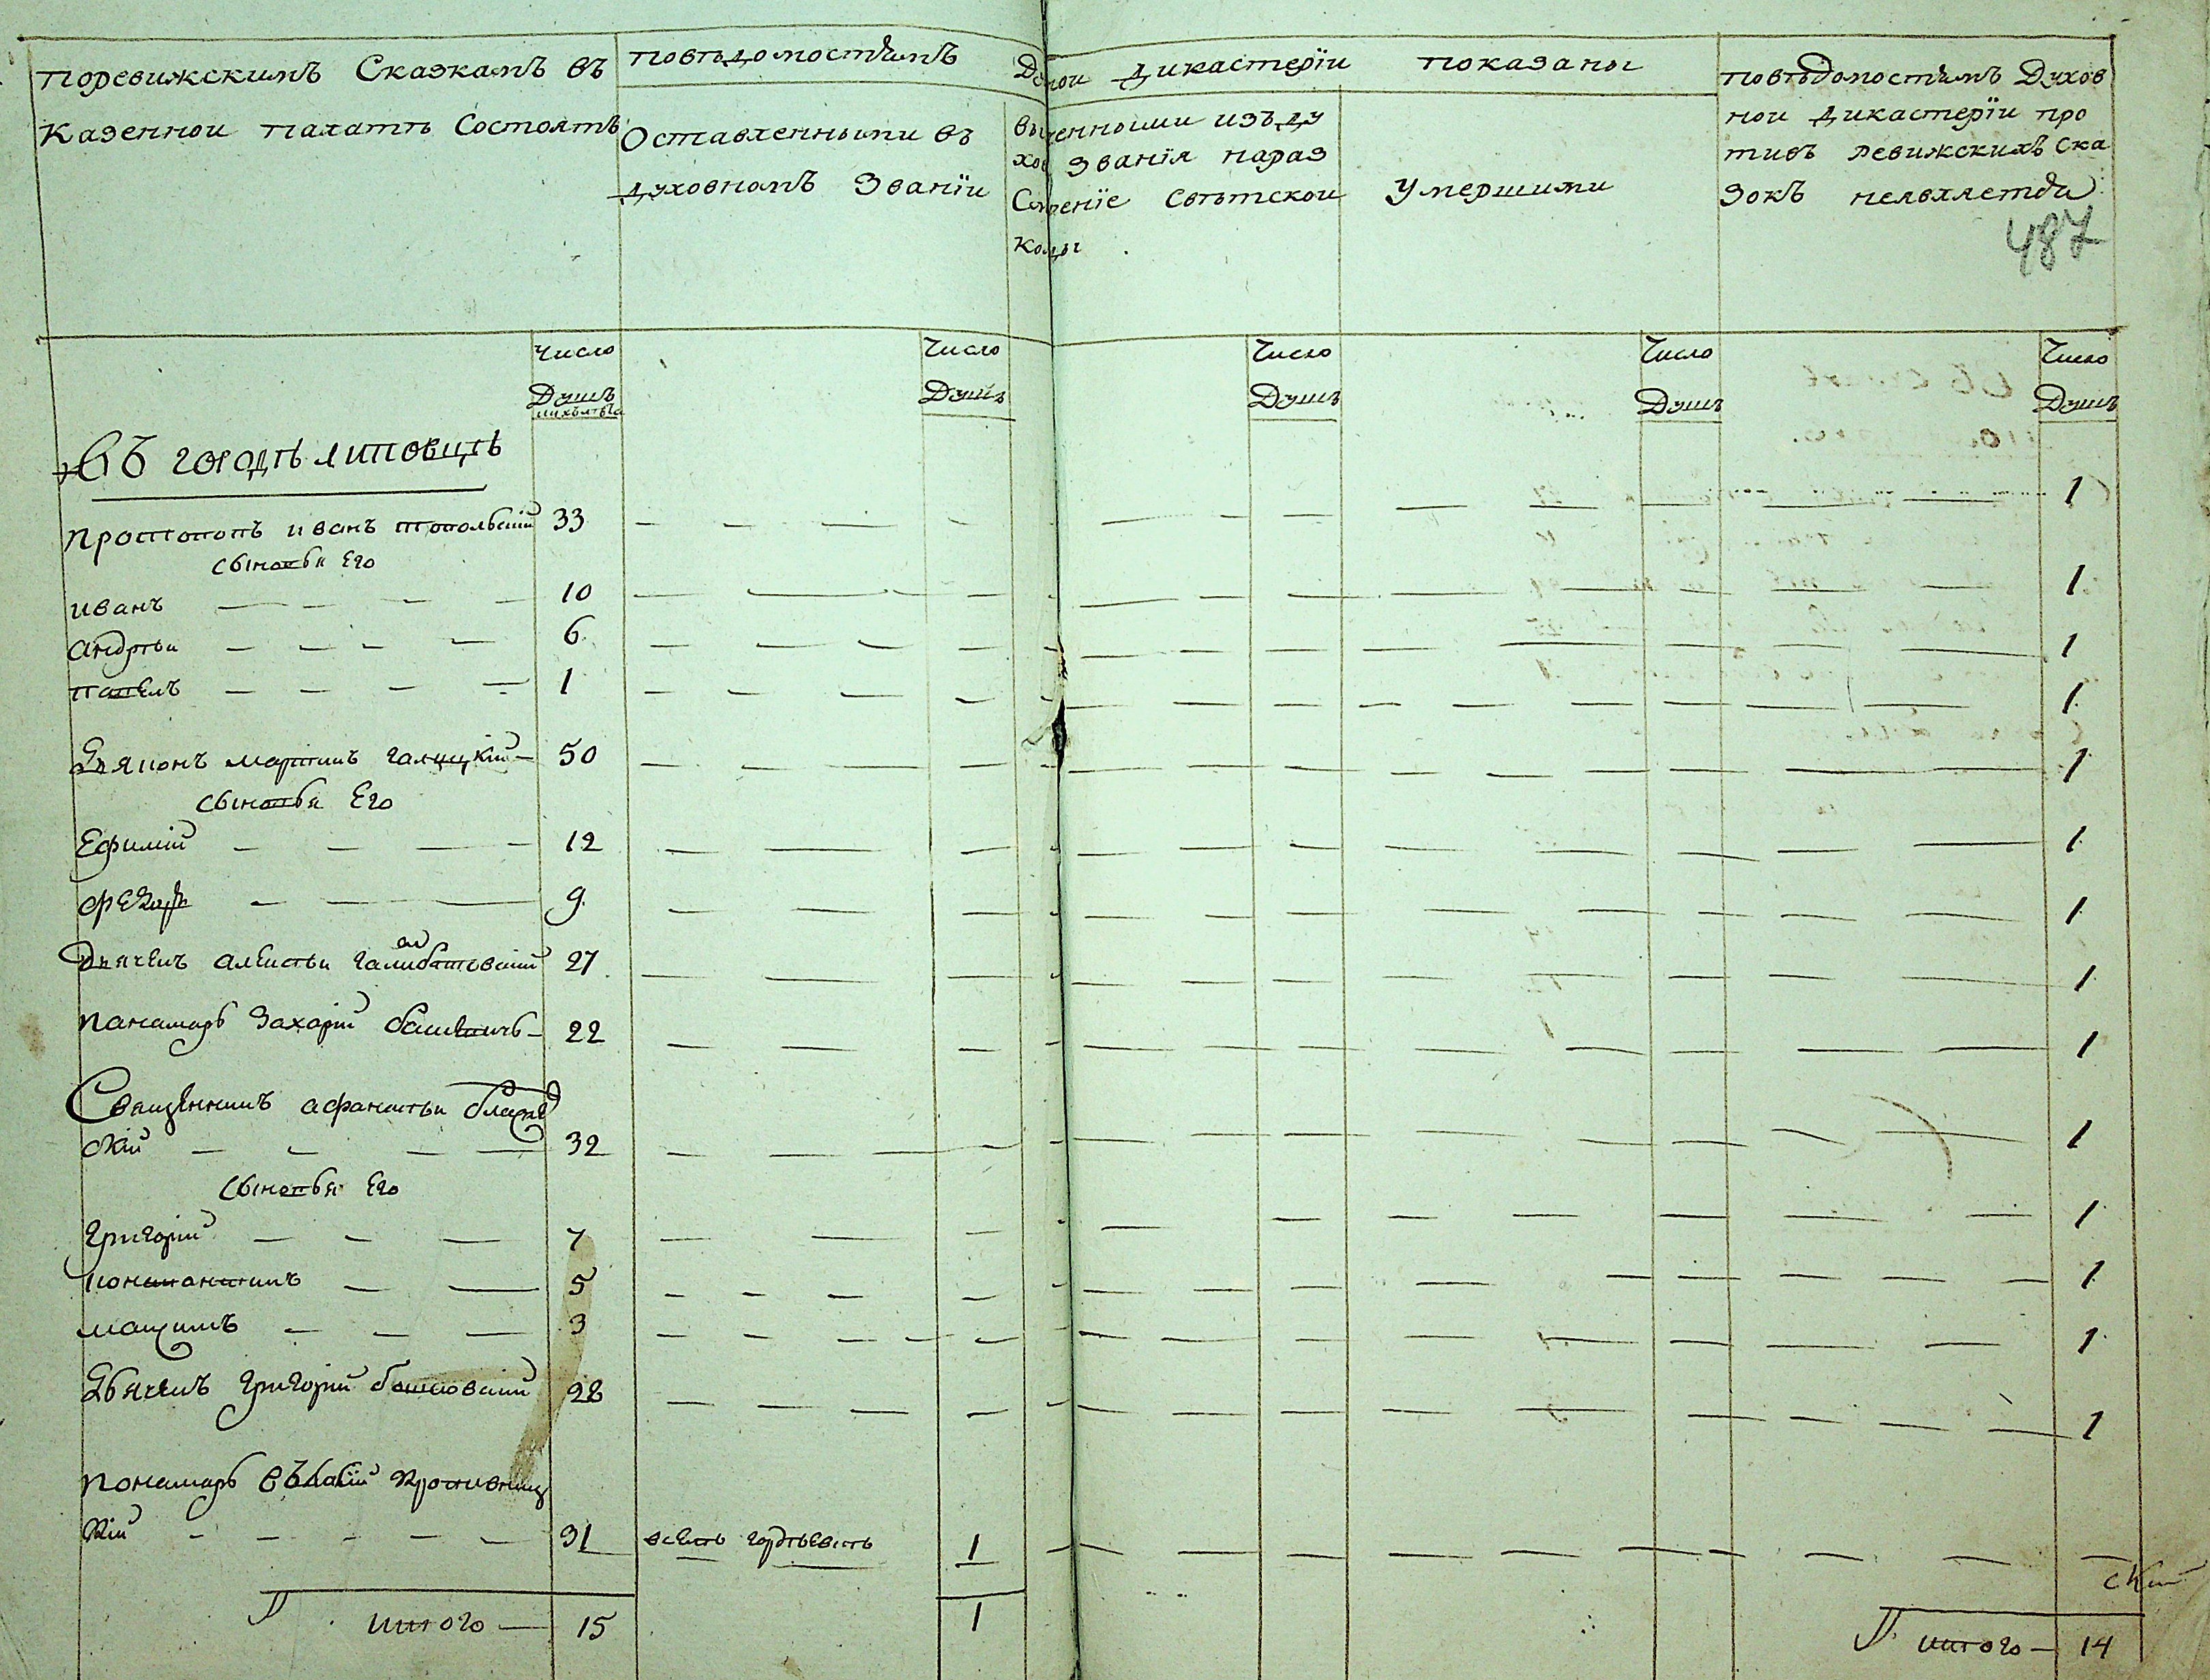 Поревижскимъ Сказкамъ въ
Казенной палатѣ Состоятъ
Повѣдомостямъ Духовной Дикастеріи показаны
Оставленными въ
духовномъ Званїи
Званія на раз
Свѣтской
Команды
Умершими
Повѣдомостямъ Духов
ной Дикастерїи про
тивъ Ревижскихъ Ска
зокъ неявляется
487
Число Число Число Число Число
Душъ Душъ Душъ Душъ Душъ
Въ городѣ липовцѣ
Протопопъ иванъ топольскій 33 1
сыновья Его
иванъ 10 1
андрѣй 6 1
павелъ 1 1
Діяконъ мартинъ галицкій 50 1
сыновья Его
Ефимій 12 1
федоръ 9 1
Дьячекъ алексѣй 27 1
панамарь Захарій 22 1
Священникъ афанасѣй
скій 32 1
сыновья Его
григорій 7 1
константинъ 5 1
максимъ 3 1
Дьячекъ григорій 28 1
понамарь
кій 31 1
итого 15 1
итого 14